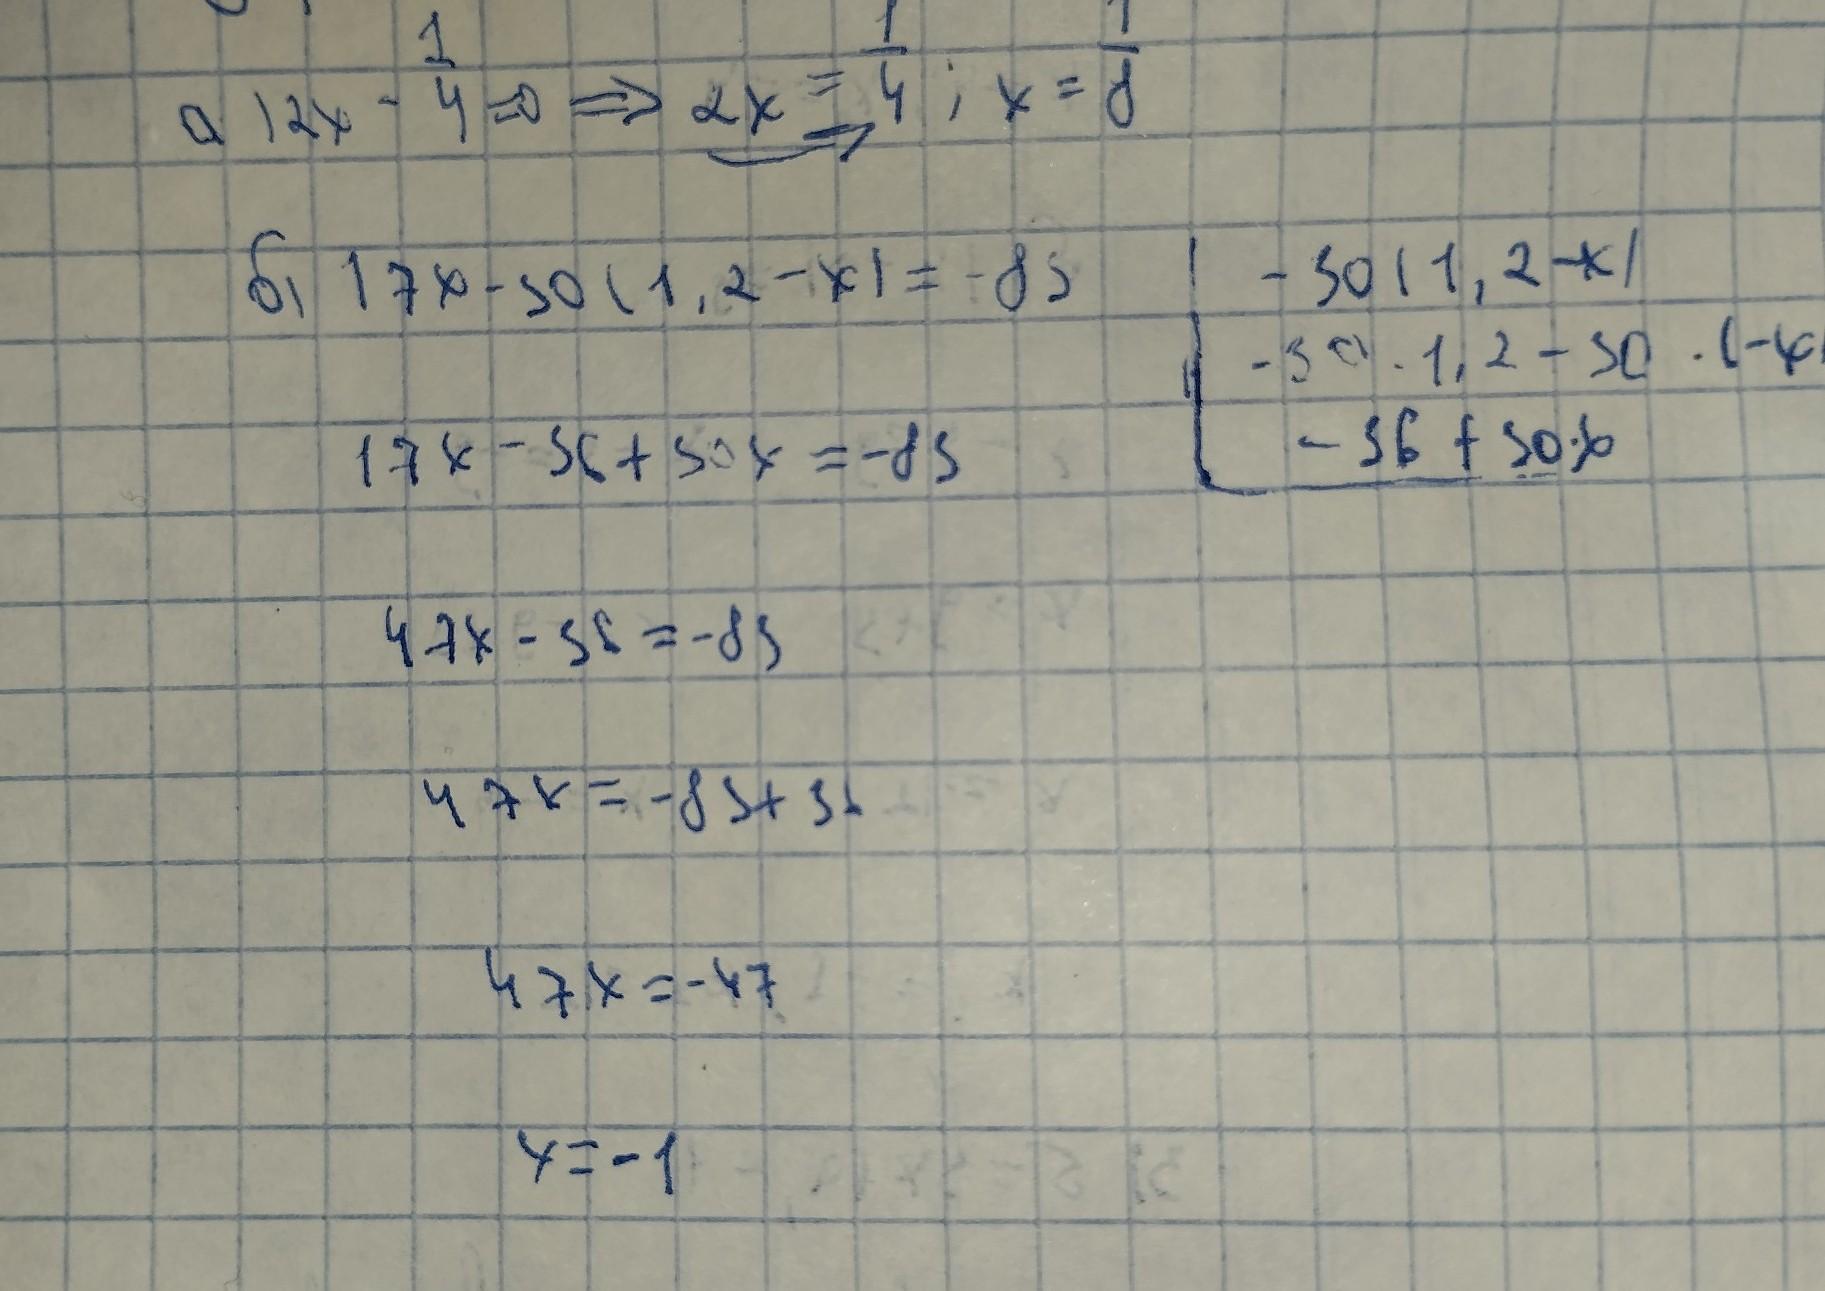 а) 2x - 1/4 = 0 ⇒ 2x = 1/4 ; x = 1/8
б) 17x - 30(1,2 - x) = -83
-30(1,2 - x)
-30 · 1,2 - 30 · (-x)
- 36 + 30x
17x - 36 + 30x = -83
47x - 36 = -83
47x = -83 + 36
47x = -47
x = -1